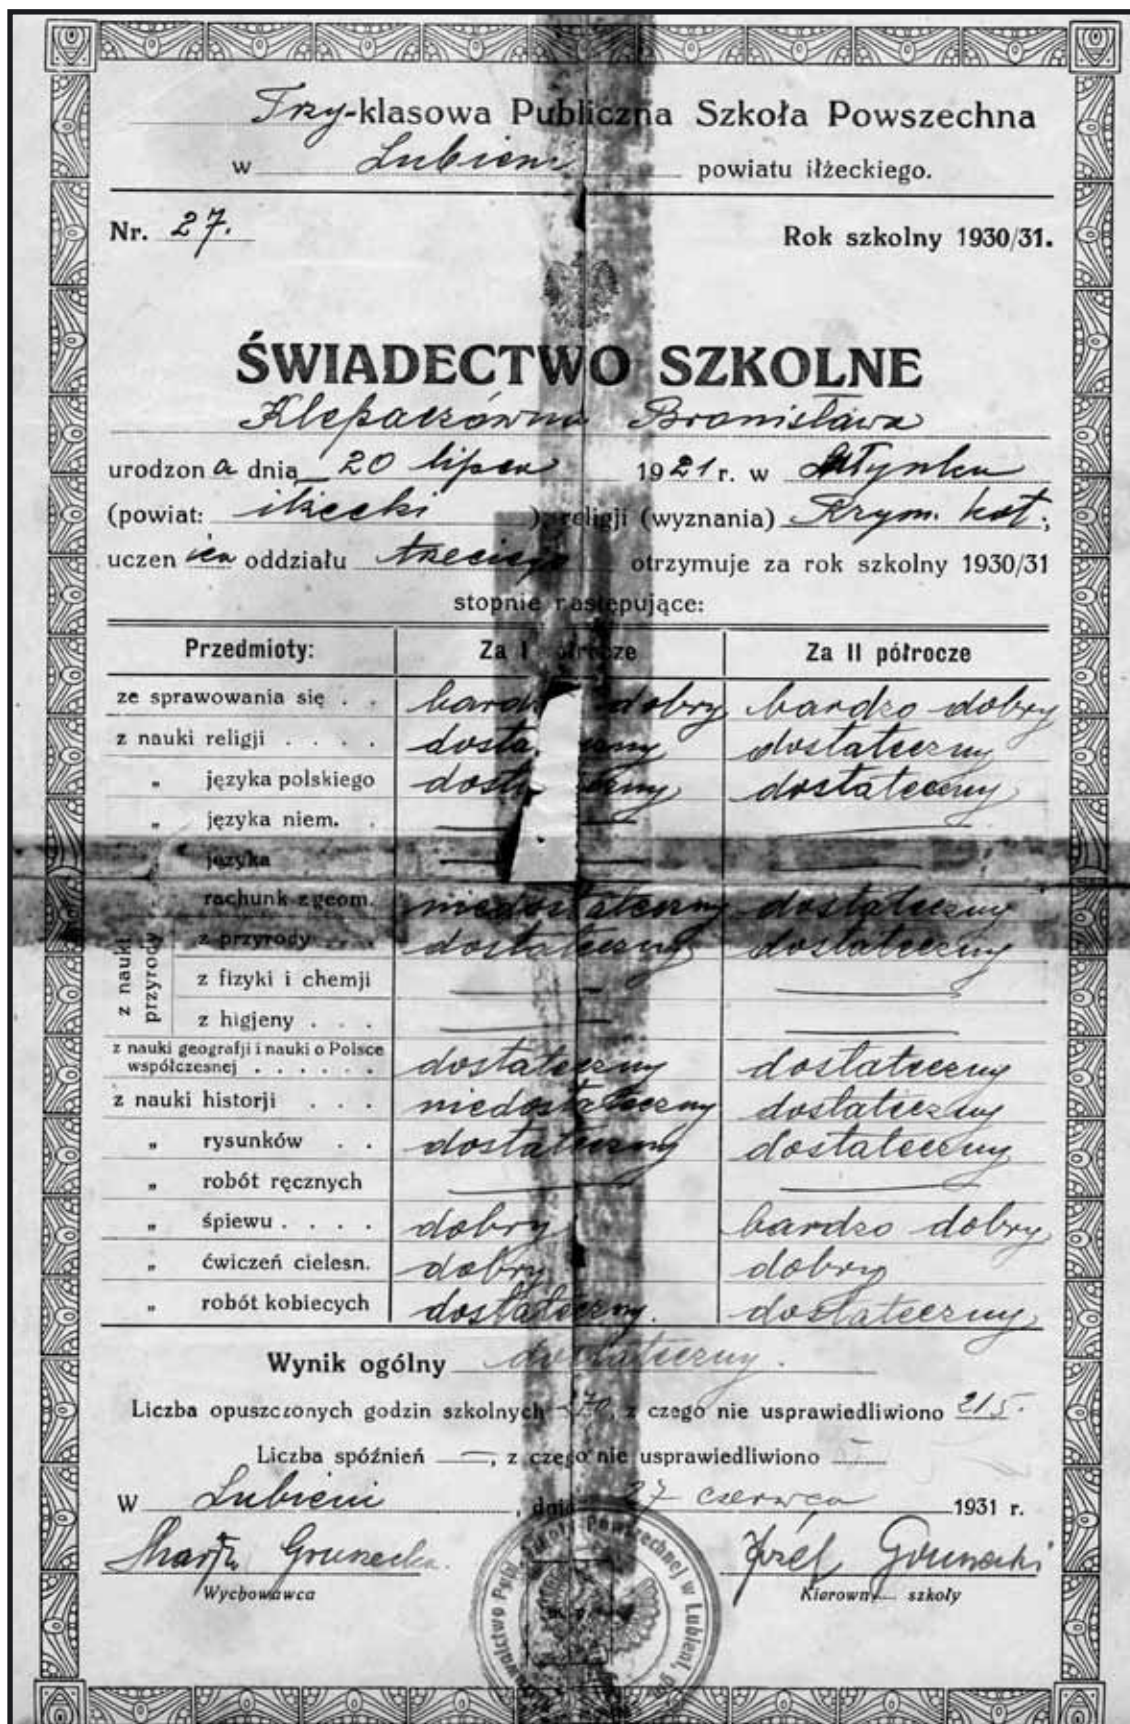 Trzy-klasowa Publiczna Szkoła Powszechna
w Lubieni powiatu iłżeckiego.
Nr. 27. Rok szkolny 1930/31.
ŚWIADECTWO SZKOLNE
Klepaczówna Bronisława
urodzona dnia 20 lipca 1921 r. w Młynku
(powiat: iłżecki ), religji (wyznania) Rzym. kat.;
uczenica oddziału trzeciego otrzymuje za rok szkolny 1930/31
stopnie następujące:
Przedmioty: Za I półrocze Za II półrocze
ze sprawowania się . . bardzo dobry bardzo dobry
z nauki religji . . . . dostateczny dostateczny
„ języka polskiego dostateczny dostateczny
„ języka niem. . — —
„ języka — —
„ rachunk z geom. niedostateczny dostateczny
z nauki przyrody
z przyrody . . dostateczny dostateczny
z fizyki i chemji — —
z higjeny . . . — —
z nauki geografji i nauki o Polsce
współczesnej . . . . . . dostateczny dostateczny
z nauki historji . . . niedostateczny dostateczny
„ rysunków . . dostateczny dostateczny
„ robót ręcznych — —
„ śpiewu . . . . dobry bardzo dobry
„ ćwiczeń cielesn. dobry dobry
„ robót kobiecych dostateczny. dostateczny
Wynik ogólny dostateczny.
Liczba opuszczonych godzin szkolnych z czego nie usprawiedliwiono 215.
Liczba spóźnień —, z czego nie usprawiedliwiono —
W Lubieni, dnia 27 czerwca 1931 r.
Józef
Wychowawca Kierown— szkoły
Publ. Szkoły Powszechnej w Lubieni,